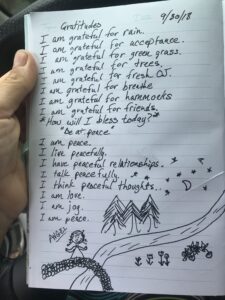 9/30/18
Gratitudes
I am grateful for rain.
I am grateful for acceptance.
I am grateful for green grass.
I am grateful for trees.
I am grateful for fresh OJ.
I am grateful for breathe
I am grateful for hammocks
I am grateful for friends.
*How will I bless today?*
"Be at peace"
I am peace.
I live peacefully.
I have peaceful relationships.
I talk peacefully.
I think peaceful thoughts..
I am love.
I am joy.
I am peace.